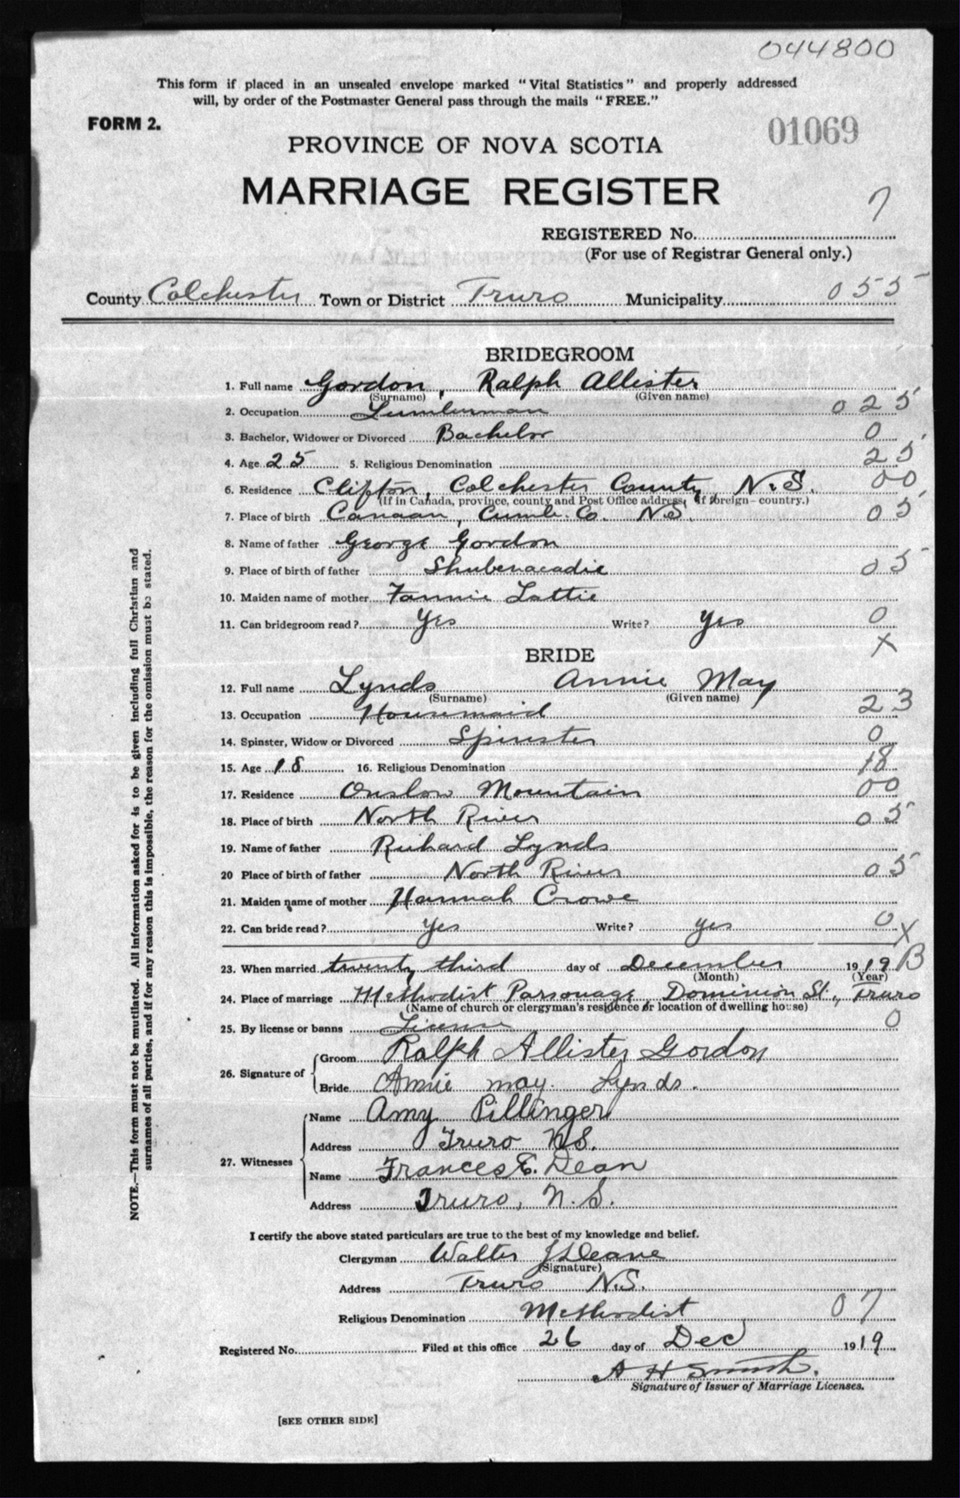 044800
This form if placed in an unsealed envelope marked "Vital Statistics" and properly addressed
will, by order of the Postmaster General pass through the mails "FREE."
FORM 2.
01069
PROVINCE OF NOVA SCOTIA
MARRIAGE REGISTER
7
REGISTERED No.
(For use of Registrar General only.)
County Colchester Town or District Truro Municipality 055
BRIDEGROOM
1. Full name Gordon, Ralph Allister
(Surname) (Given name)
2. Occupation Lumberman 025
3. Bachelor, Widower or Divorced Bachelor 0
4. Age 25 5. Religious Denomination 25
6. Residence Clifton, Colchester County, N.S. 00
(If in Canada, province, county and Post Office address; if foreign—country.)
7. Place of birth Canaan, Cumb. Co. N.S. 05
8. Name of father George Gordon
9. Place of birth of father Shubenacadie 05
10. Maiden name of mother Fannie Lattie
11. Can bridegroom read? Yes Write? Yes 0
X
BRIDE
12. Full name Lynds Annie May
(Surname) (Given name)
13. Occupation Housemaid 23
14. Spinster, Widow or Divorced Spinster 0
15. Age 18 16. Religious Denomination 18
17. Residence Onslow Mountain 00
18. Place of birth North River 05
19. Name of father Richard Lynds
20 Place of birth of father North River 05
21. Maiden name of mother Hannah Crowe
22. Can bride read? Yes Write? yes 0
X
23. When married twenty third day of December 1919 B
(Month) (Year)
24. Place of marriage Methodist Parsonage Dominion St., Truro
(Name of church or clergyman's residence or location of dwelling house)
25. By license or banns License 0
26. Signature of Groom Ralph Allister Gordon
Bride Annie may. Lynds.
27. Witnesses Name Amy Pillinger
Address Truro N.S.
Name Frances E. Dean
Address Truro, N.S.
I certify the above stated particulars are true to the best of my knowledge and belief.
Clergyman Walter J Deane
(Signature)
Address Truro N.S.
Religious Denomination Methodist 07
Registered No. Filed at this office 26 day of Dec 1919
A H Smith.
Signature of Issuer of Marriage Licenses.
[SEE OTHER SIDE]
NOTE.—This form must not be mutilated. All information asked for is to be given including full Christian and
surnames of all parties, and if for any reason this is impossible, the reason for the omission must be stated.